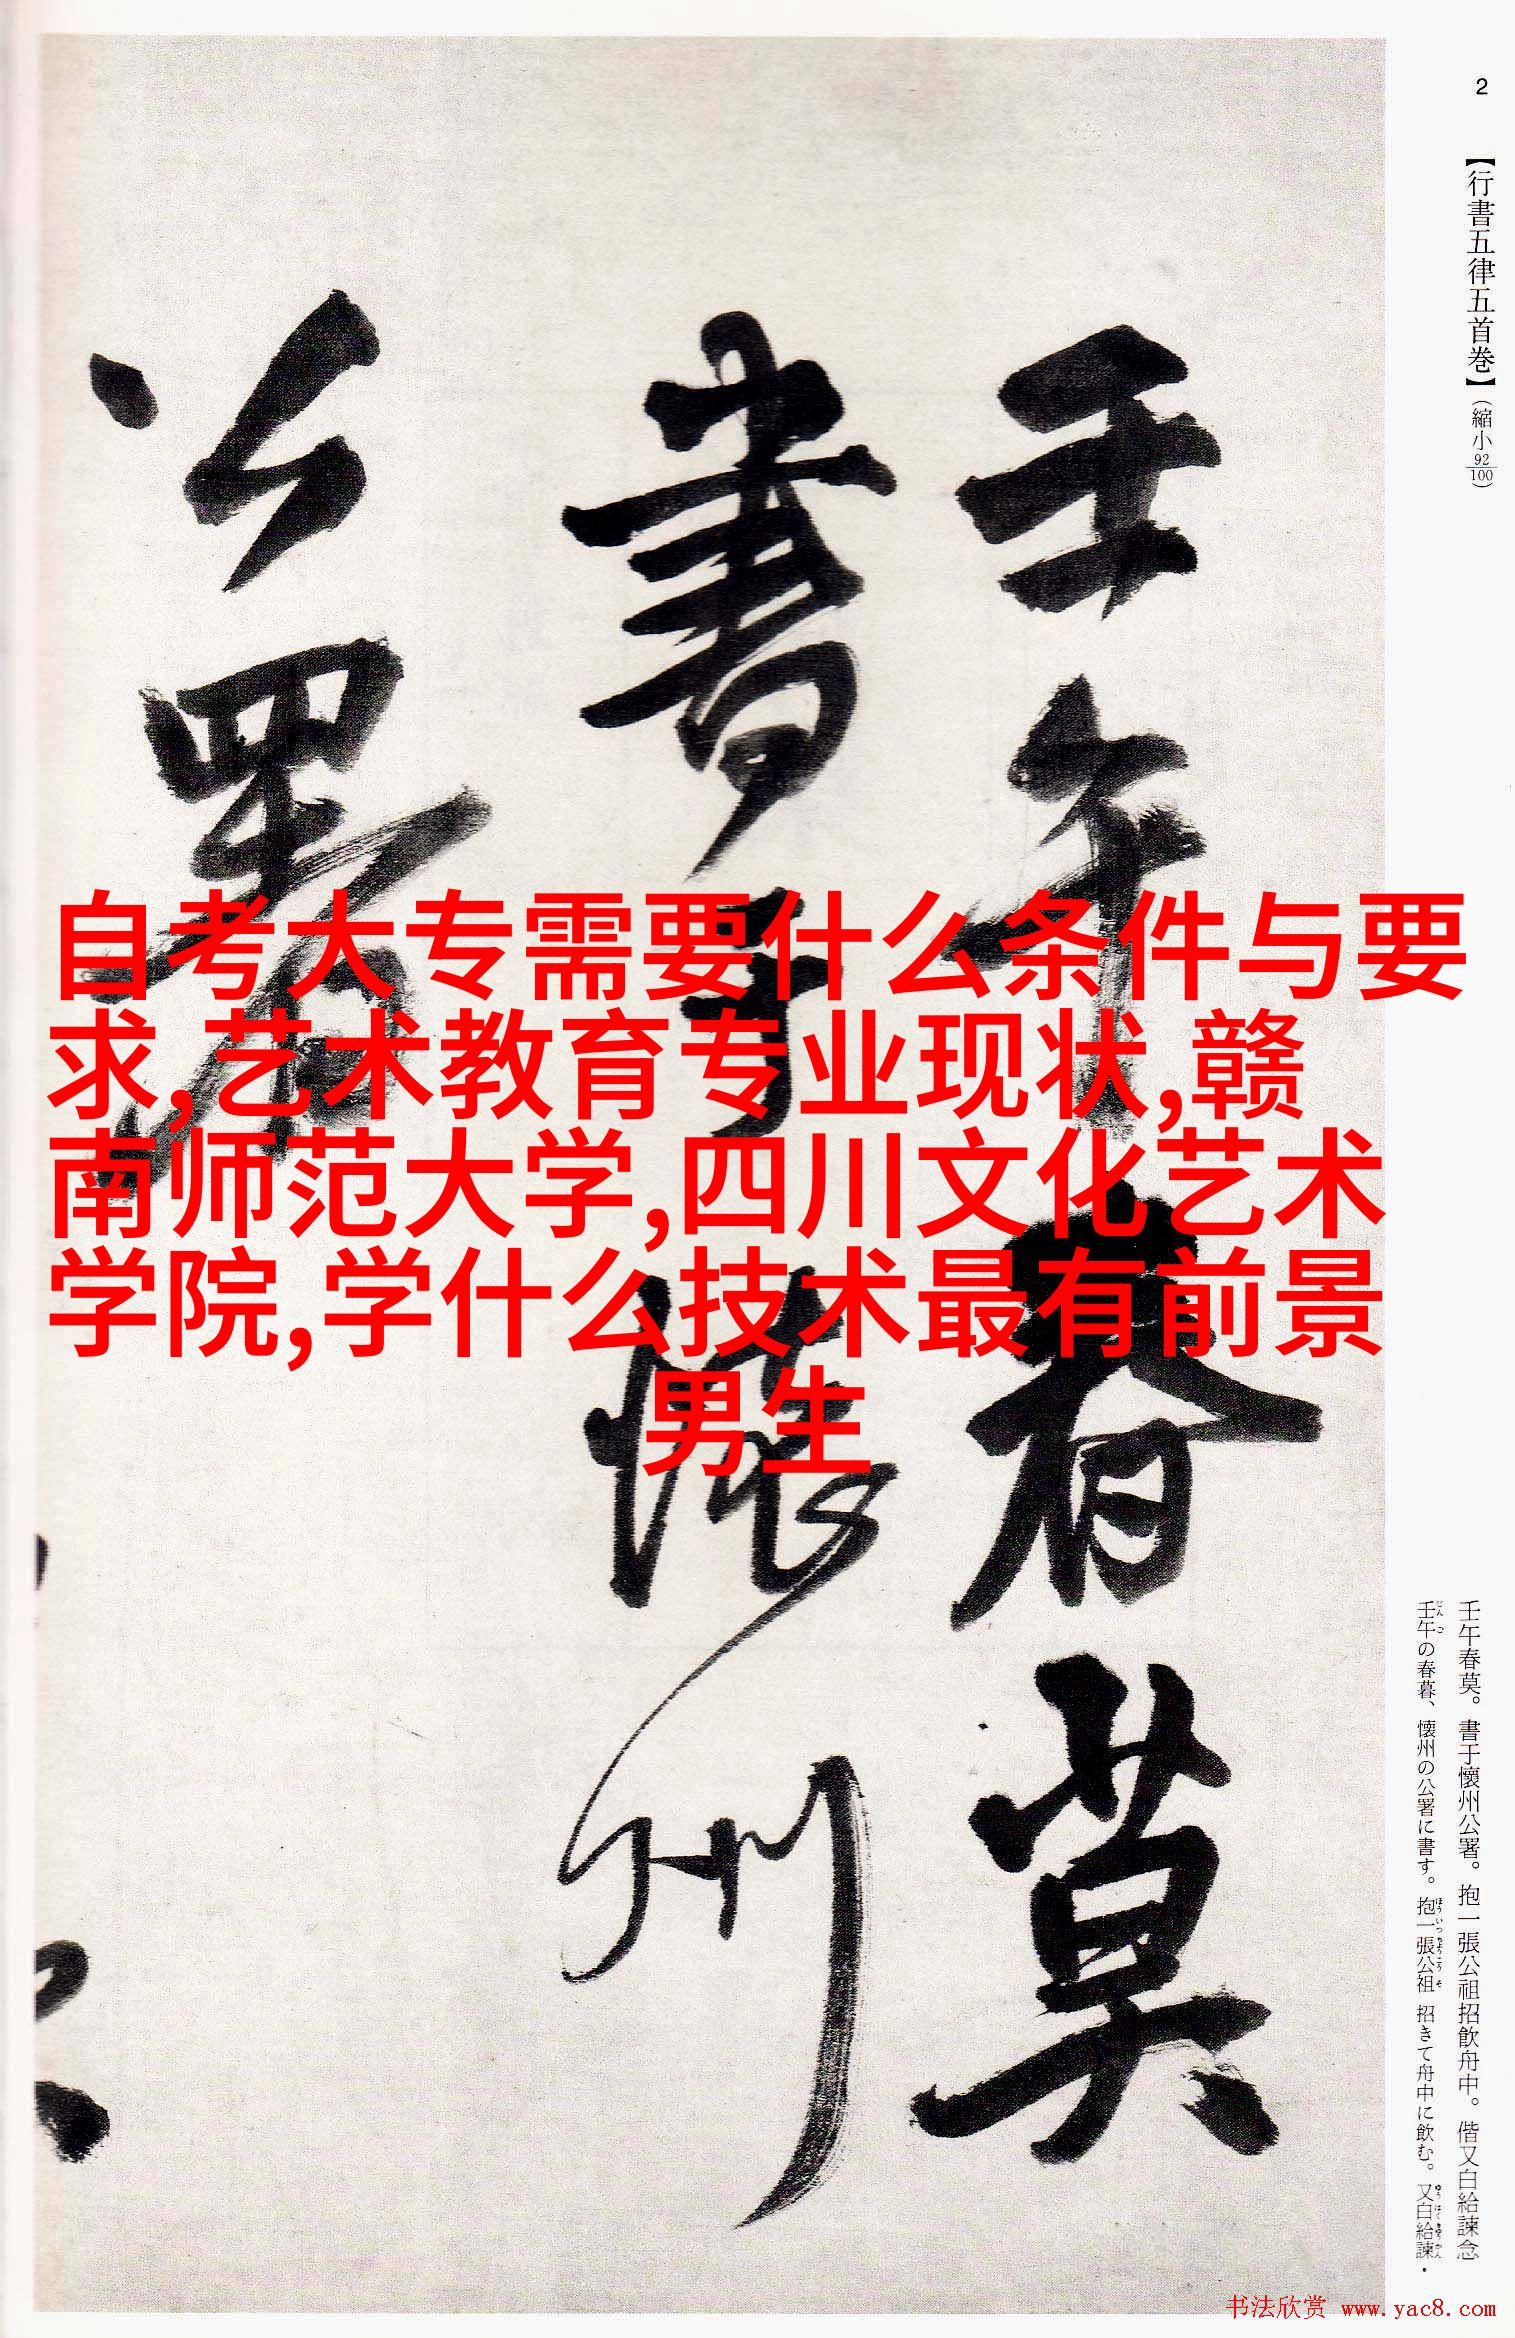 2
【行書五律五首巻】（縮小92/100）
壬午春莫
書于懷州
公署
自考大专需要什么条件与要
求,艺术教育专业现状,赣
南师范大学,四川文化艺术
学院,学什么技术最有前景
男生
壬午春莫。書于懷州公署。抱一張公祖招飲舟中。偕又白給諫念
壬午の春暮、懷州の公署に書す。抱一張公祖 招きて舟中に飲む。又白給諫・
书法欣赏 www.yac8.com